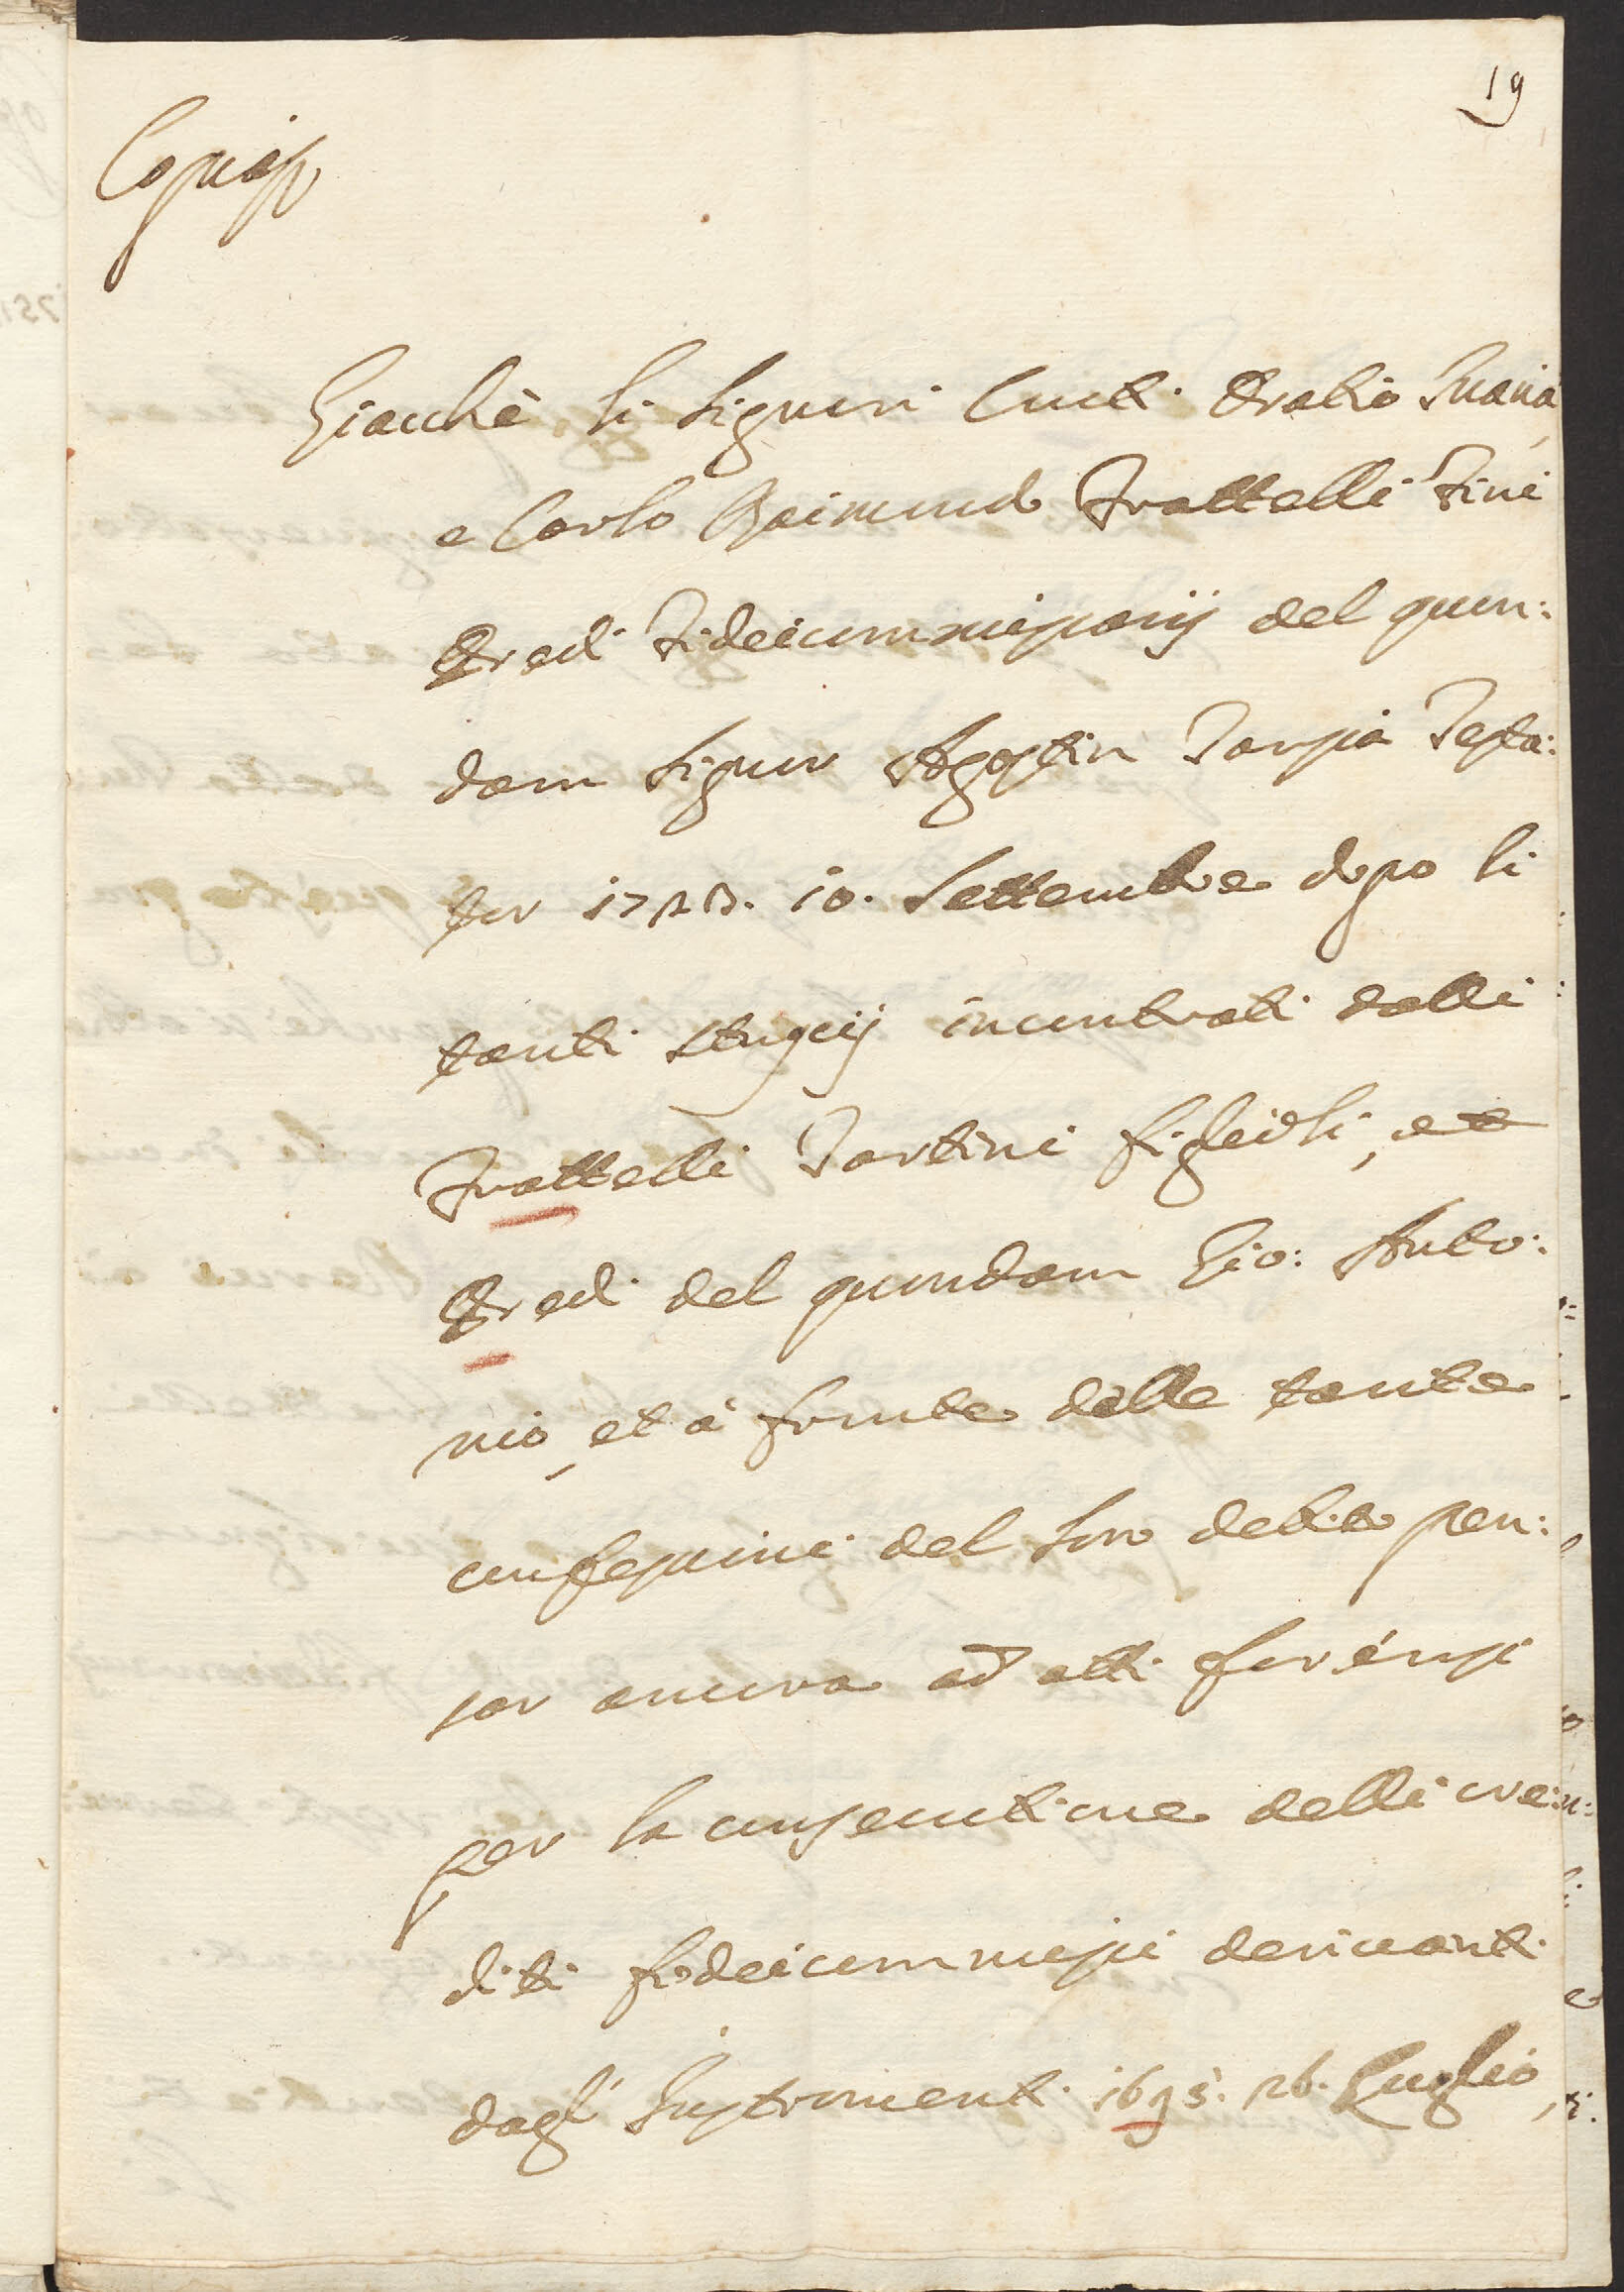 19
Copia
Giacchè li Signori Conti Oratio Maria,
e Carlo Raimondo Frattelli Fini
Eredi Fideicommissarij del quon:
dam Signor Agostin Tarsia Testa:
tor 1722. 10. Settembre dopo li
tanti studij incontrati dalli
Frattelli Tartini figlioli, et
Eredi del quondam Gio: Anto:
nio, et à fronte delle tante
confessioni del loro debito pen:
sar ancora ad atti forensi
per la consecutione delli cre:
diti fideicommissi derivanti
dagl' Instromenti 1695. 26. Luglio,